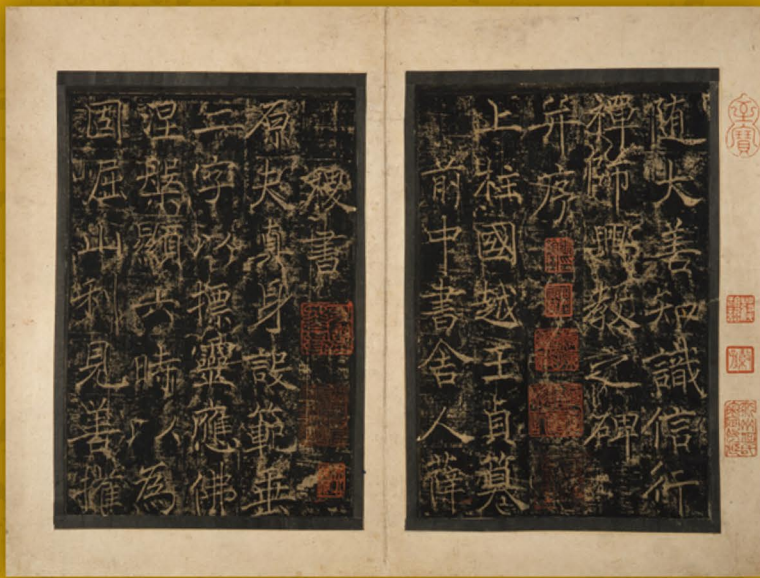 随大善知識信行
禪師興教之碑
并序
上柱國越王貞撰
前中書舍人薛
稷書
原夫真身設範垂
二字以摽靈應佛
涅槃顯六時以為
因崛山利見善權